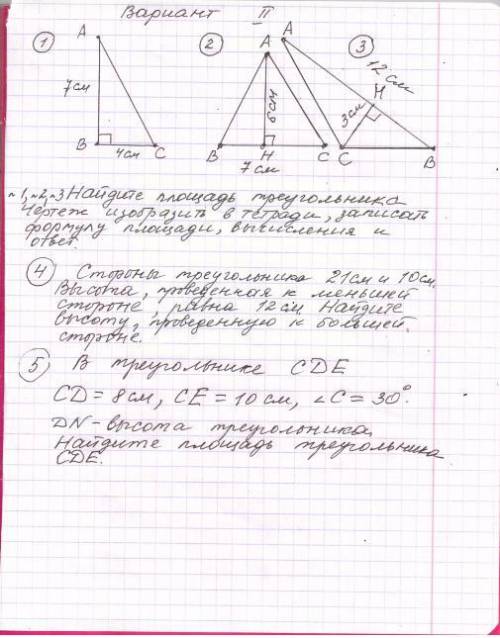 Вариант II
1 2 3
A A A
7см 6см 12 см
3см H
B 4см C B H C C B
7см
~1,~2,~3 Найдите площадь треугольника
Чертеж изобразить в тетради, записать
формулу площади, вычисления и
ответ.
4 Стороны треугольника 21см и 10см.
Высота, проведенная к меньшей
стороне, равна 12см. Найдите
высоту, проведенную к большей
стороне.
5 В треугольнике CDE
CD = 8см, CE = 10см, ∠C = 30°.
DN - высота треугольника.
Найдите площадь треугольника
CDE.